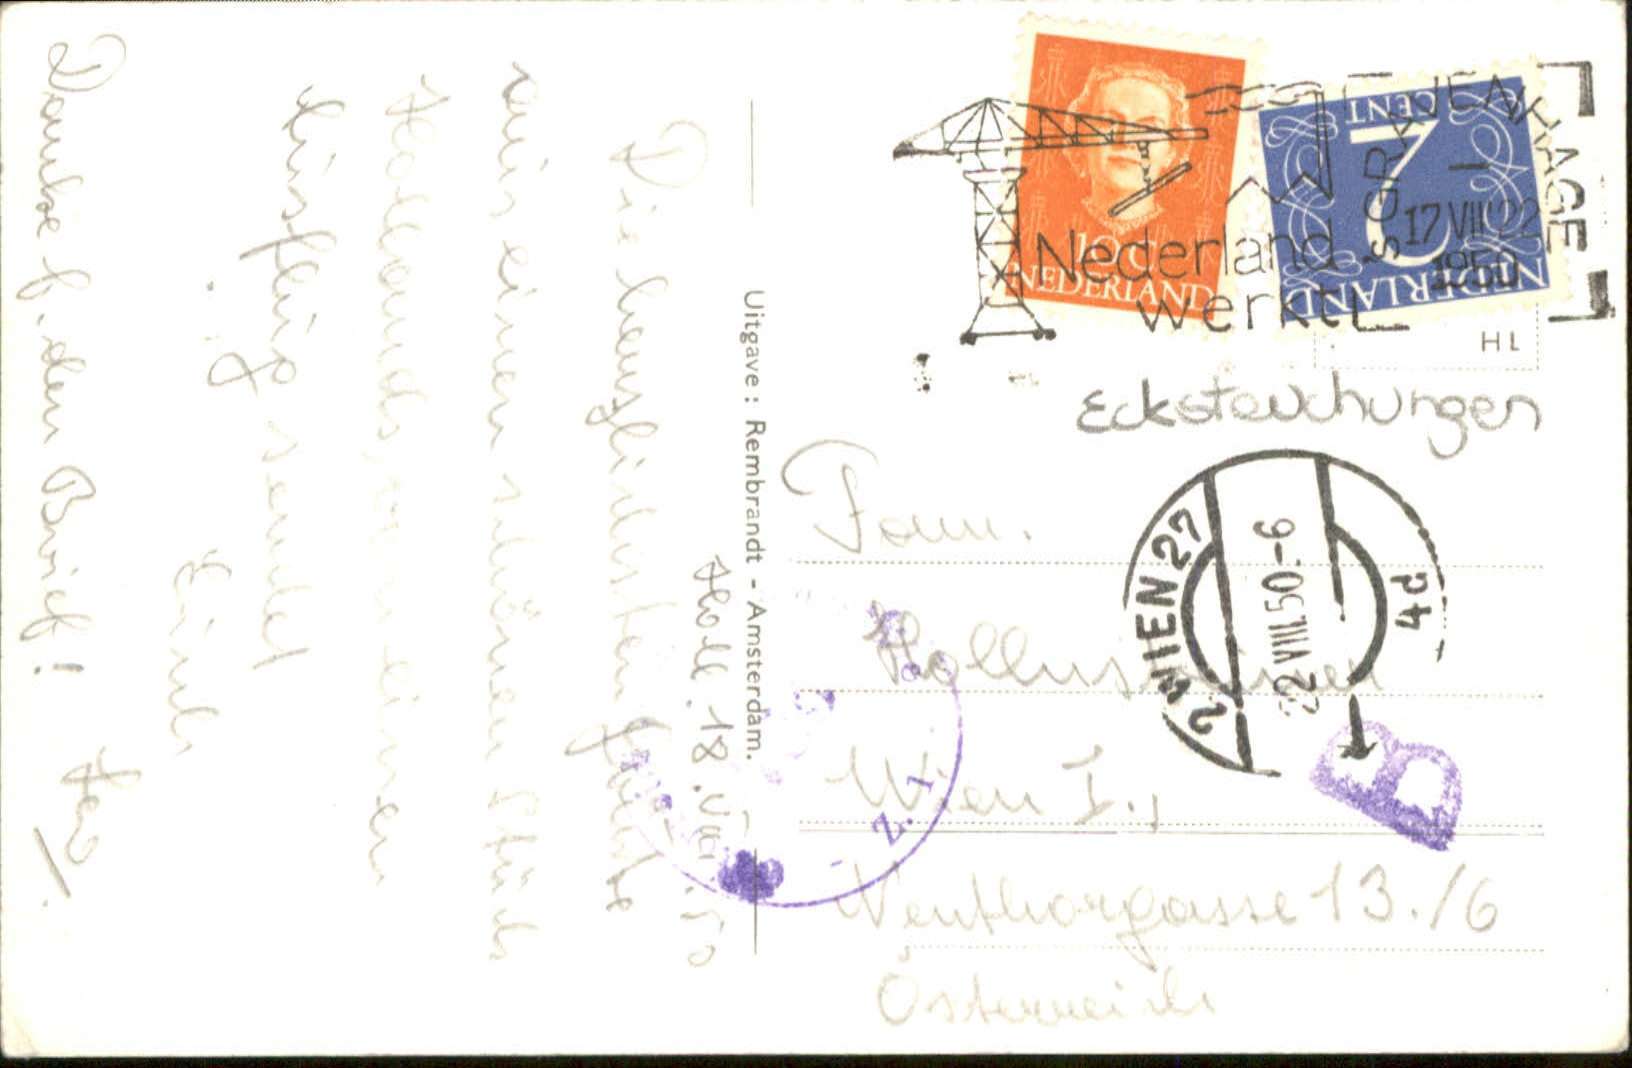 Holl. 18. VIII. 50
Die herzlichsten Grüße
aus einem schönen Stück
Hollands, von einem
Ausflug sendet
Danke f. den Brief!
Uitgave : Rembrandt - Amsterdam.
10 C
NEDERLAND
2
CENT
NEDERLAND
'S GRAVENHAGE
17 VIII 22
1950
Nederland
werkt
HL
Eckstauchungen
Fam.
Wien I.,
13./6
Österreich
2 WIEN 27
22 VIII 50.-6
4d
Z. 1
B